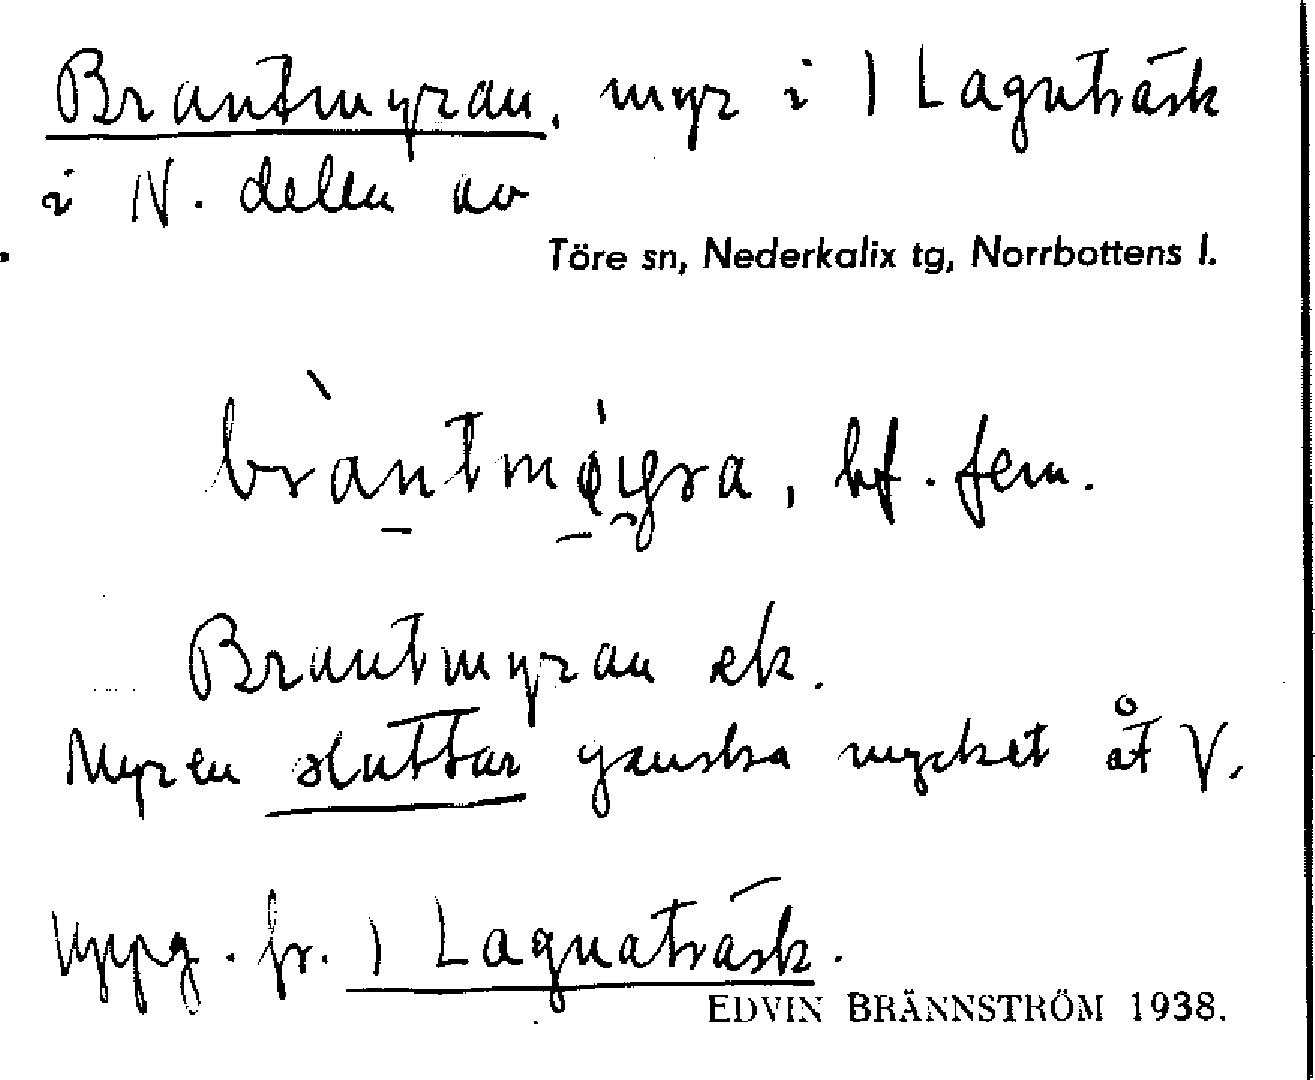 Brantmyran, myr i 1 Lagnträsk
i N. delen av
Töre sn, Nederkalix tg, Norrbottens l.
bf. fem.
Brantmyran ek.
Myren sluttar ganska mycket åt V.
Uppg. fr. 1 Lagnaträsk.
EDVIN BRÄNNSTRÖM 1938.